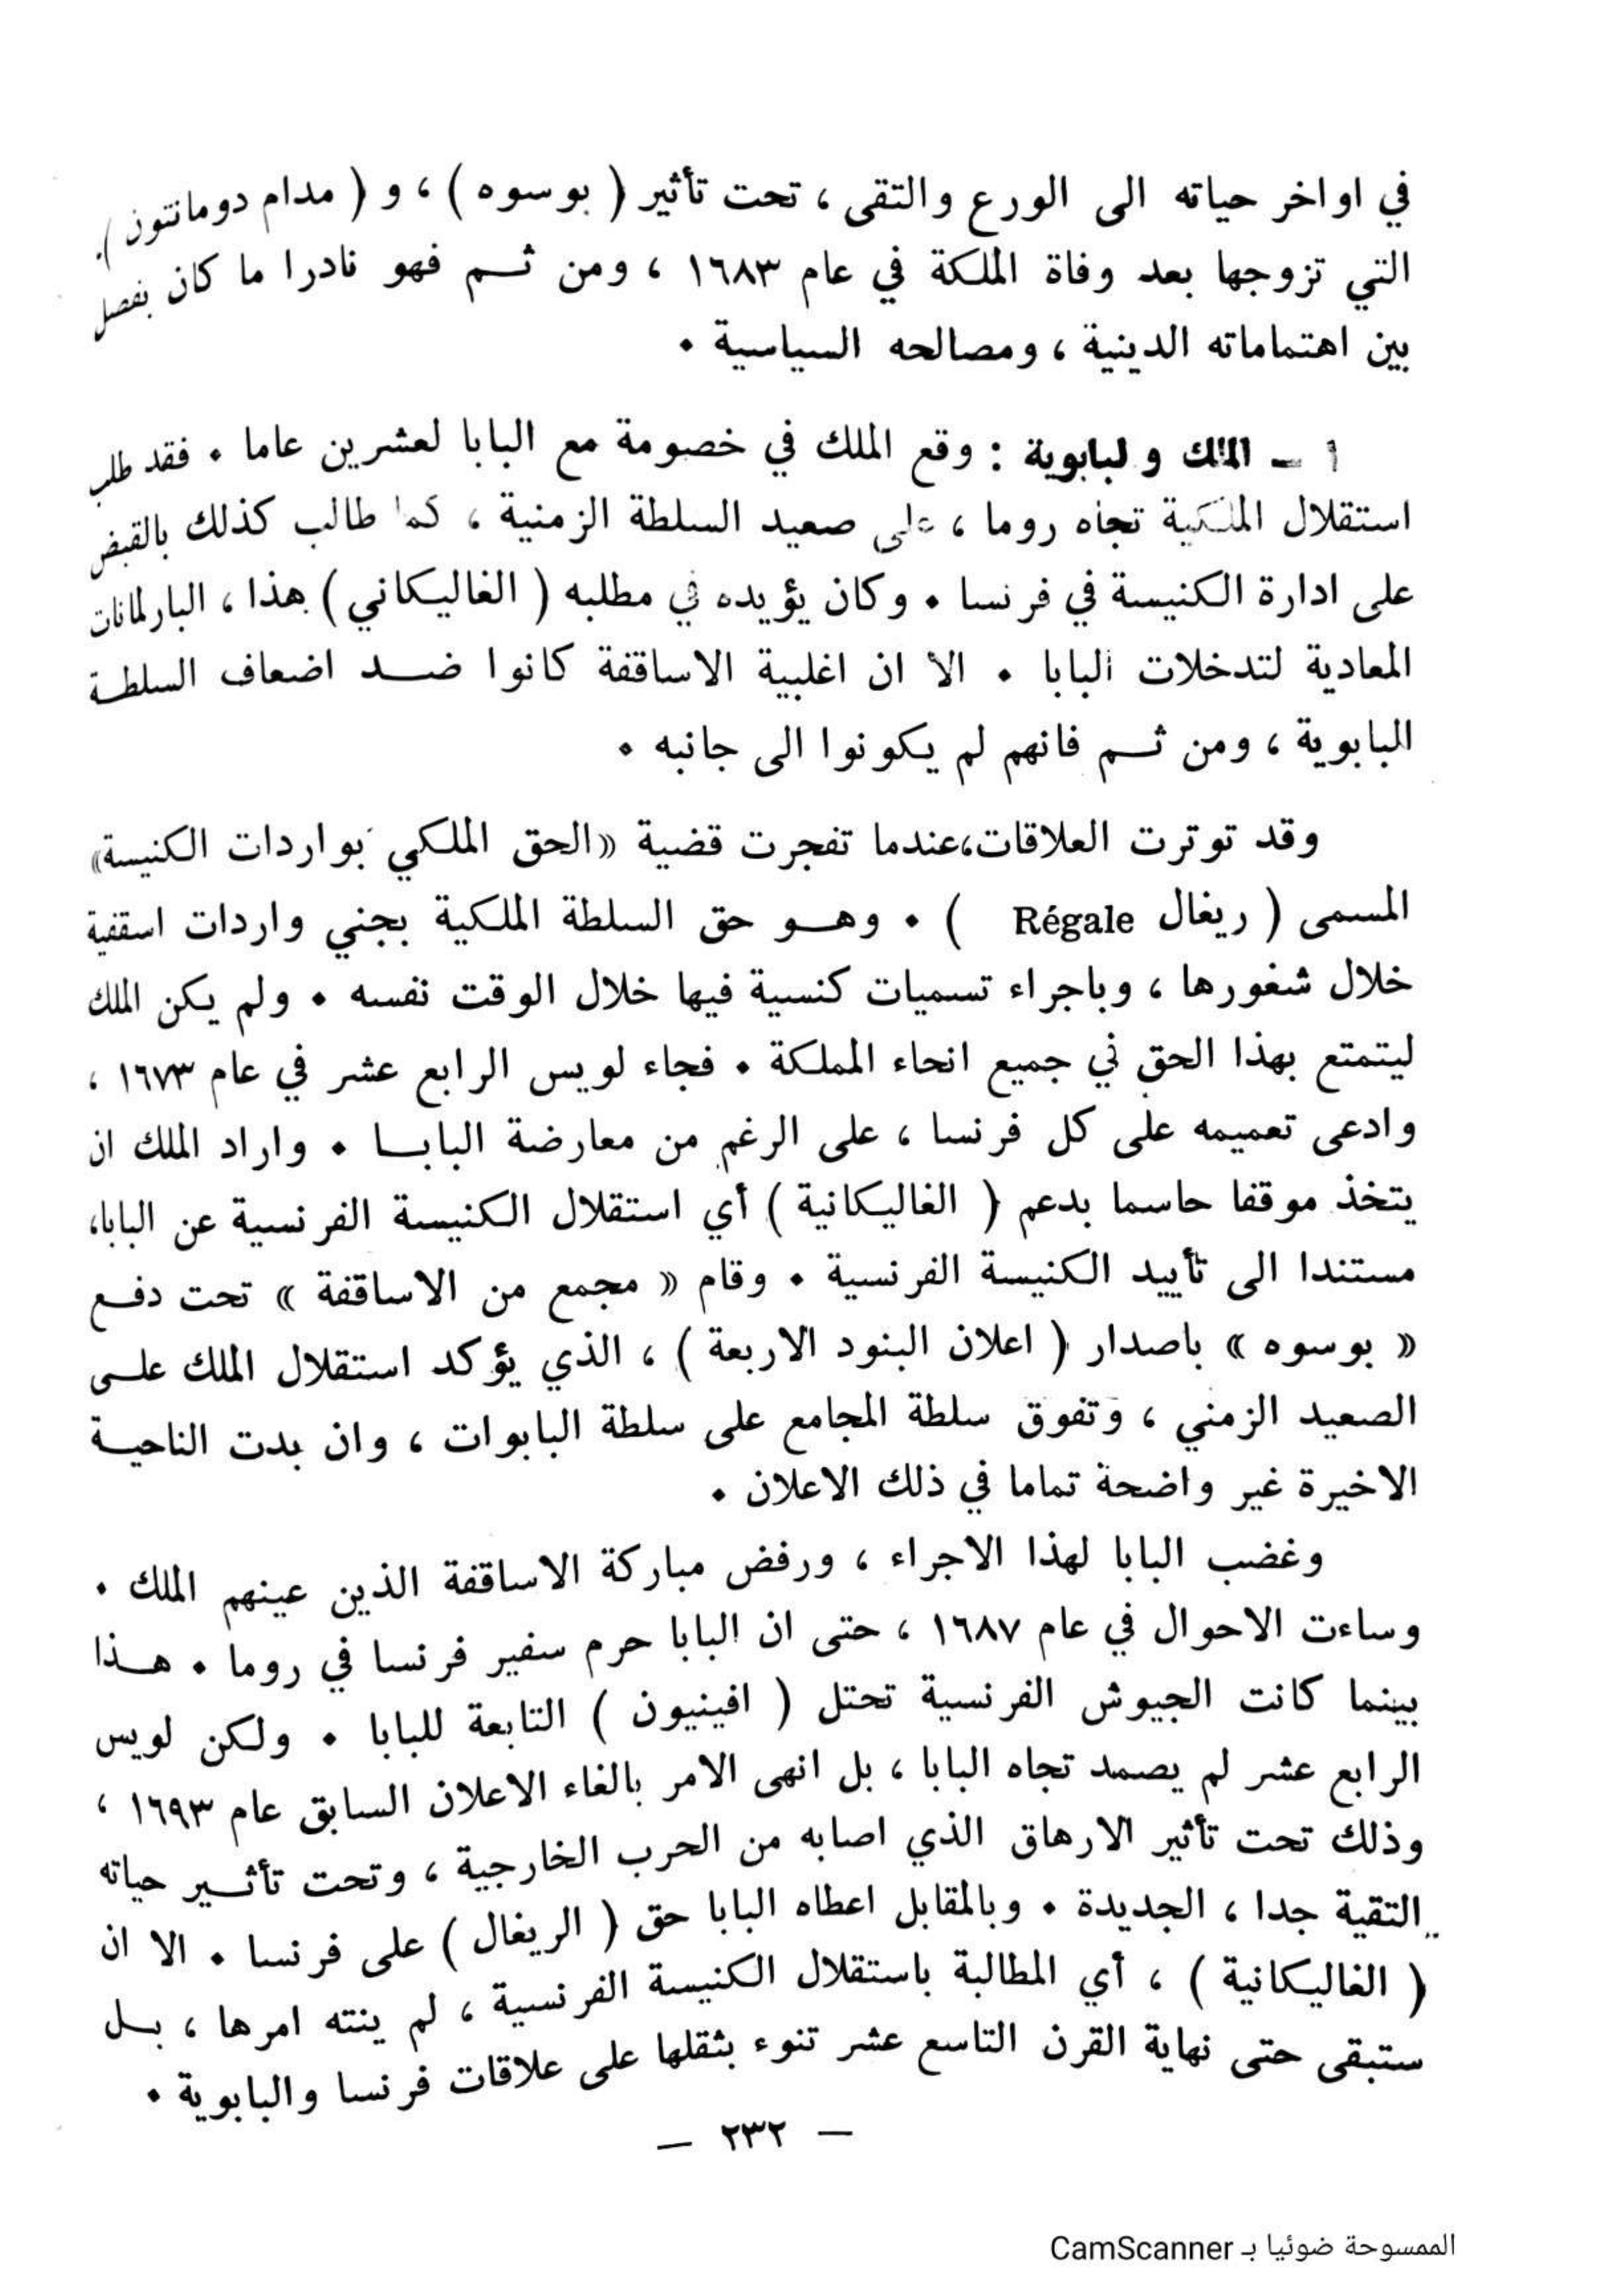 في اواخر حياته الى الورع والتقى ، تحت تأثير ( بوسوه ) ، و ( مدام دومانتون ) .
التي تزوجها بعد وفاة الملكة في عام ١٦٨٣ ، ومن ثم فهو نادرا ما كان يفصل
بين اهتماماته الدينية ، ومصالحه السياسية .
أ ــ الملك و لبابوية : وقع الملك في خصومة مع البابا لعشرين عاما . فقد طلب
استقلال الملكية تجاه روما ، على صعيد السلطة الزمنية ، كما طالب كذلك بالقبض
على ادارة الكنيسة في فرنسا . وكان يؤيده في مطلبه ( الغاليكاني ) هذا ، البارلمانات
المعادية لتدخلات البابا . الا ان اغلبية الاساقفة كانوا ضد اضعاف السلطة
البابوية ، ومن ثم فانهم لم يكونوا الى جانبه .
وقد توترت العلاقات،عندما تفجرت قضية «الحق الملكي بواردات الكنيسة»
المسمى ( ريغال Régale ) . وهو حق السلطة الملكية بجني واردات اسقفية
خلال شغورها ، وباجراء تسميات كنسية فيها خلال الوقت نفسه . ولم يكن الملك
ليتمتع بهذا الحق في جميع انحاء المملكة . فجاء لويس الرابع عشر في عام ١٦٧٣ ،
وادعى تعميمه على كل فرنسا ، على الرغم من معارضة البابا . واراد الملك ان
يتخذ موقفا حاسما بدعم ( الغاليكانية ) أي استقلال الكنيسة الفرنسية عن البابا،
مستندا الى تأييد الكنيسة الفرنسية . وقام « مجمع من الاساقفة » تحت دفع
« بوسوه » باصدار ( اعلان البنود الاربعة ) ، الذي يؤكد استقلال الملك على
الصعيد الزمني ، وتفوق سلطة المجامع على سلطة البابوات ، وان بدت الناحية
الاخيرة غير واضحة تماما في ذلك الاعلان .
وغضب البابا لهذا الاجراء ، ورفض مباركة الاساقفة الذين عينهم الملك .
وساءت الاحوال في عام ١٦٨٧ ، حتى ان البابا حرم سفير فرنسا في روما . هذا
بينما كانت الجيوش الفرنسية تحتل ( افينيون ) التابعة للبابا . ولكن لويس
الرابع عشر لم يصمد تجاه البابا ، بل انهى الامر بالغاء الاعلان السابق عام ١٦٩٣ ،
وذلك تحت تأثير الارهاق الذي اصابه من الحرب الخارجية ، وتحت تأثير حياته
التقية جدا ، الجديدة . وبالمقابل اعطاه البابا حق ( الريغال ) على فرنسا . الا ان
( الغاليكانية ) ، أي المطالبة باستقلال الكنيسة الفرنسية ، لم ينته امرها ، بل
ستبقى حتى نهاية القرن التاسع عشر تنوء بثقلها على علاقات فرنسا والبابوية .
ــ ٢٣٢ ــ
الممسوحة ضوئيا بـ CamScanner